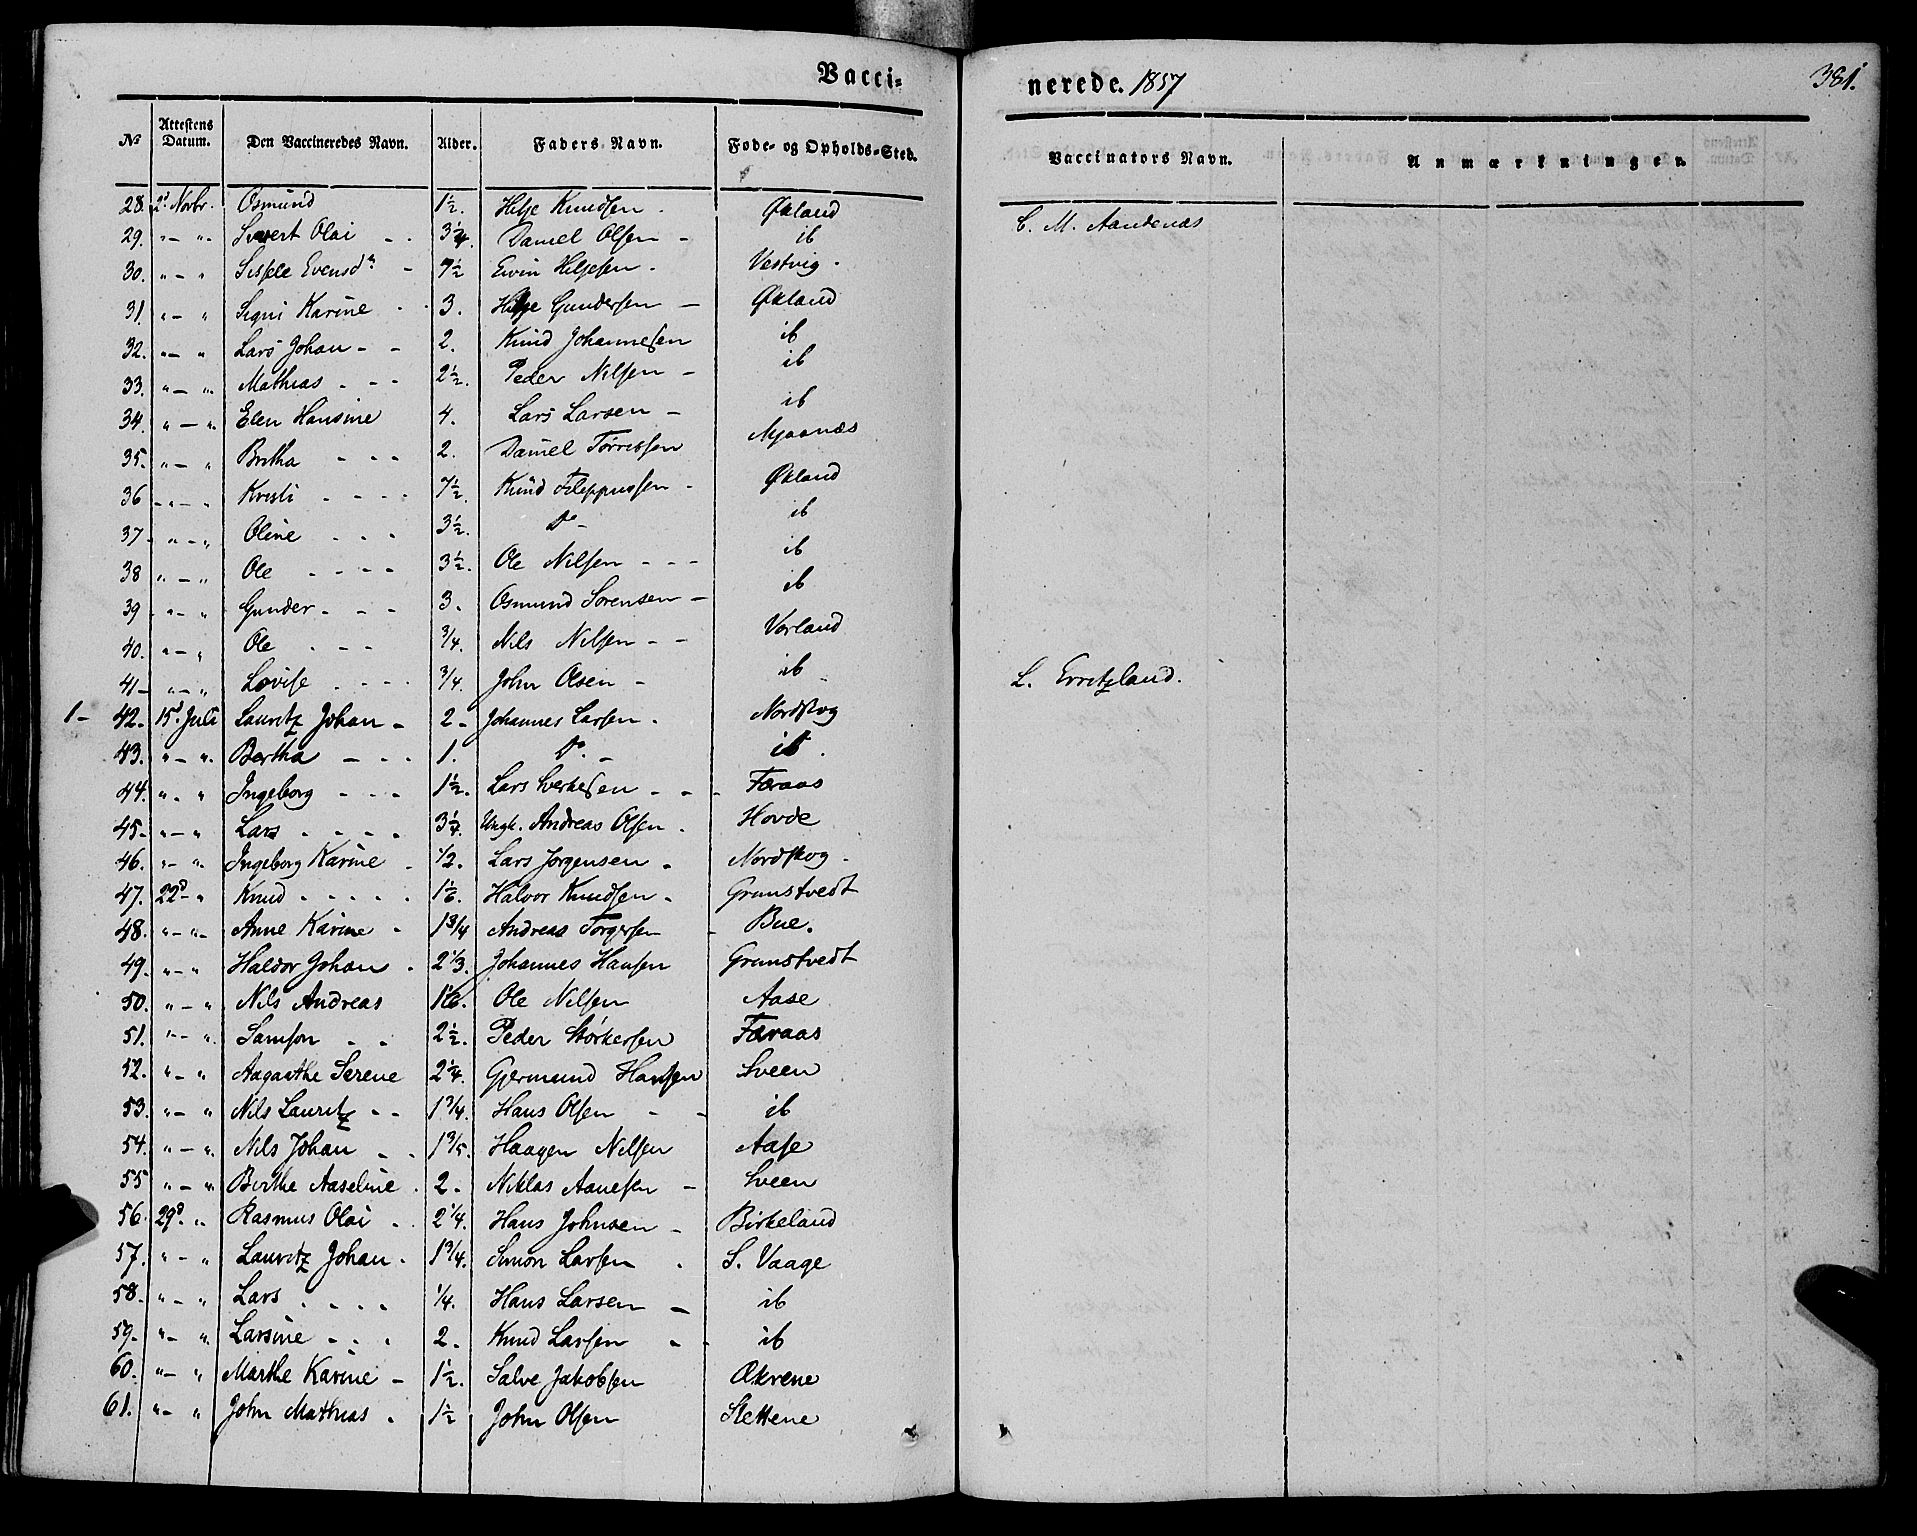 Vacci-
nerede. 1857
381.
No
Attestens Datum.
Den Vaccineredes Navn.
Alder.
Faders Navn.
Føde- og Opholds-Sted.
Vaccinators Navn.
Anmærkninger.
28. 2d Novbr. Osmund 1½. Helje Knudsen. Økland C. M. Aandenæs
29. "-" Sivert Olai - . 3¼. Daniel Olsen - ib
30. "-" Sissele Evensdr - 7½ Evin Heljesen. Vestvig.
31. "-" Signi Karine . . 3. Helje Gundersen - Økland
32. "-" Lars Johan - - 2. Knud Johannesen ib
33. "-" Mathias . - - 2½. Peder Nilsen - ib
34. "-" Elen Hansine 4. Lars Larsen - ib
35. "-" Britha - - - 2. Daniel Tørressen Mjaanæs
36 "-" Kristi - - - - 7½. Knud Fileppussen - Økland
37. "-" Oline - - - 3½. Do - ib
38 "-" Ole - - - - 3½. Ole Nilsen - - - ib
39. "-" Gunder. - - - 3. Osmund Sørensen - ib
40. "-" Ole . - - 3/4. Nils Nilsen - - Vorland
41- "-" Lovise . - - - 3/4. John Olsen - ib L. Erretzland.
1- 42. 15d Juli Lauritz Johan - 2- Johannes Larsen. Nordskog
43. "-" Bertha - - . 1. Do. - ib.
44. "-" Ingeborg - - - 1½. Lars Sverkesen - - - Færaas
45- "-" Lars . - - - 3¼. Ungk. Andreas Olsen. Hovde
46. "-" Ingeborg Karine . 1/2. Lars Jørgensen. Nordskog.
47. 22d-" Knud - - - - . 1 1/6. Halvor Knudsen. Grunstvedt
48. "-" Anne Karine - 1 3/4 Andreas Torgersen - Bue.
49. "-" Haldor Johan . 2 1/3. Johannes Hansen Grunstvedt
50. "-" Nils Andreas 1 1/6. Ole Nilsen Aase
51. "-" Samson - - 2½. Peder Størkersen Færaas
52. "-" Aagaathe Serene 2¼. Gjermund Hansen Sveen
53. "-" Nils Lauritz - - 1 3/4. Hans Olsen - - ib
54. "-" Nils Johan - . 1 3/5. Haagen Nilsen Aase
55 "-" Birthe Aaseline . 2- Niklas Aanesen - Sveen
56. 29d. " Rasmus Olai . . 2 1/4. Hans Johnsen - Birkeland
57. "-" Lauritz Johan . 1 3/4. Simon Larsen . S. Vaage
58. "-" Lars . . . . 1/4. Hans Larsen - ib
59- "-" Larsine - - . 2- Knud Larsen - - ib
60. "-" Marthe Karine - 1½. Salve Jakobsen Økrene
61. "-" John Mathias . 1½ John Olsen Slettene